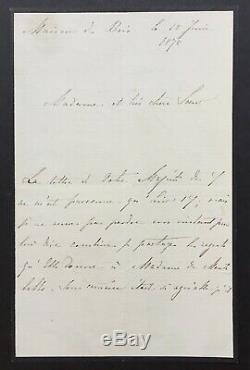 Maison du Bois le 18 Juin
1878
Madame et très chère Soeur
La lettre de Votre Majesté du 5
ne m'est parvenue que
je ne veux pas perdre un instant pour
lui dire combien je partage les regrets
qu'Elle donne à Madame de Monte
bello. Sous était si agréable